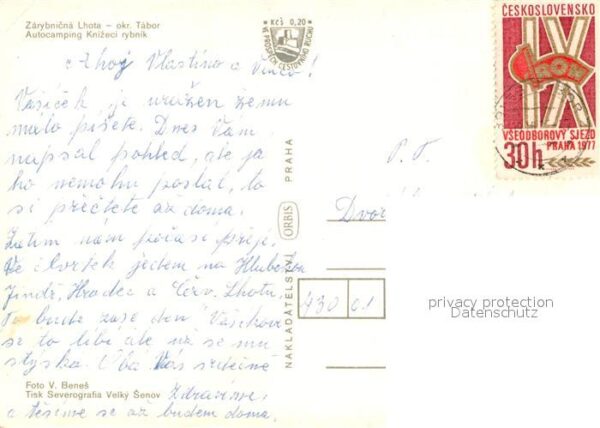 Zárybničná Lhota – okr. Tábor
Autocamping Knížecí rybník
Kčs 0,20
VE PROSPĚCH CESTOVNÍHO RUCHU
Ahoj Vlastino a
Vašíček je uražen že mu
málo píšete. Dnes Vám
napsal pohled, ale ja
ho nemohu poslat, to
si přečtete až doma.
Zatím nám počasí přeje.
Ve čtvrtek jedem na Hlubokou
Jindř. Hradec a Červ. Lhotu.
To bude zase den! Vaškovi
se to líbí ale už se mu
stýská. Oba Vás srdečně
Zdravíme
a těšíme se až budem doma.
Foto V. Beneš
Tisk Severografia Velký Šenov
NAKLADATELSTVÍ ORBIS PRAHA
ČESKOSLOVENSKO
IX
ROH
VŠEODBOROVÝ SJEZD
PRAHA 1977
30h
P. T.
430 01
privacy protection
Datenschutz